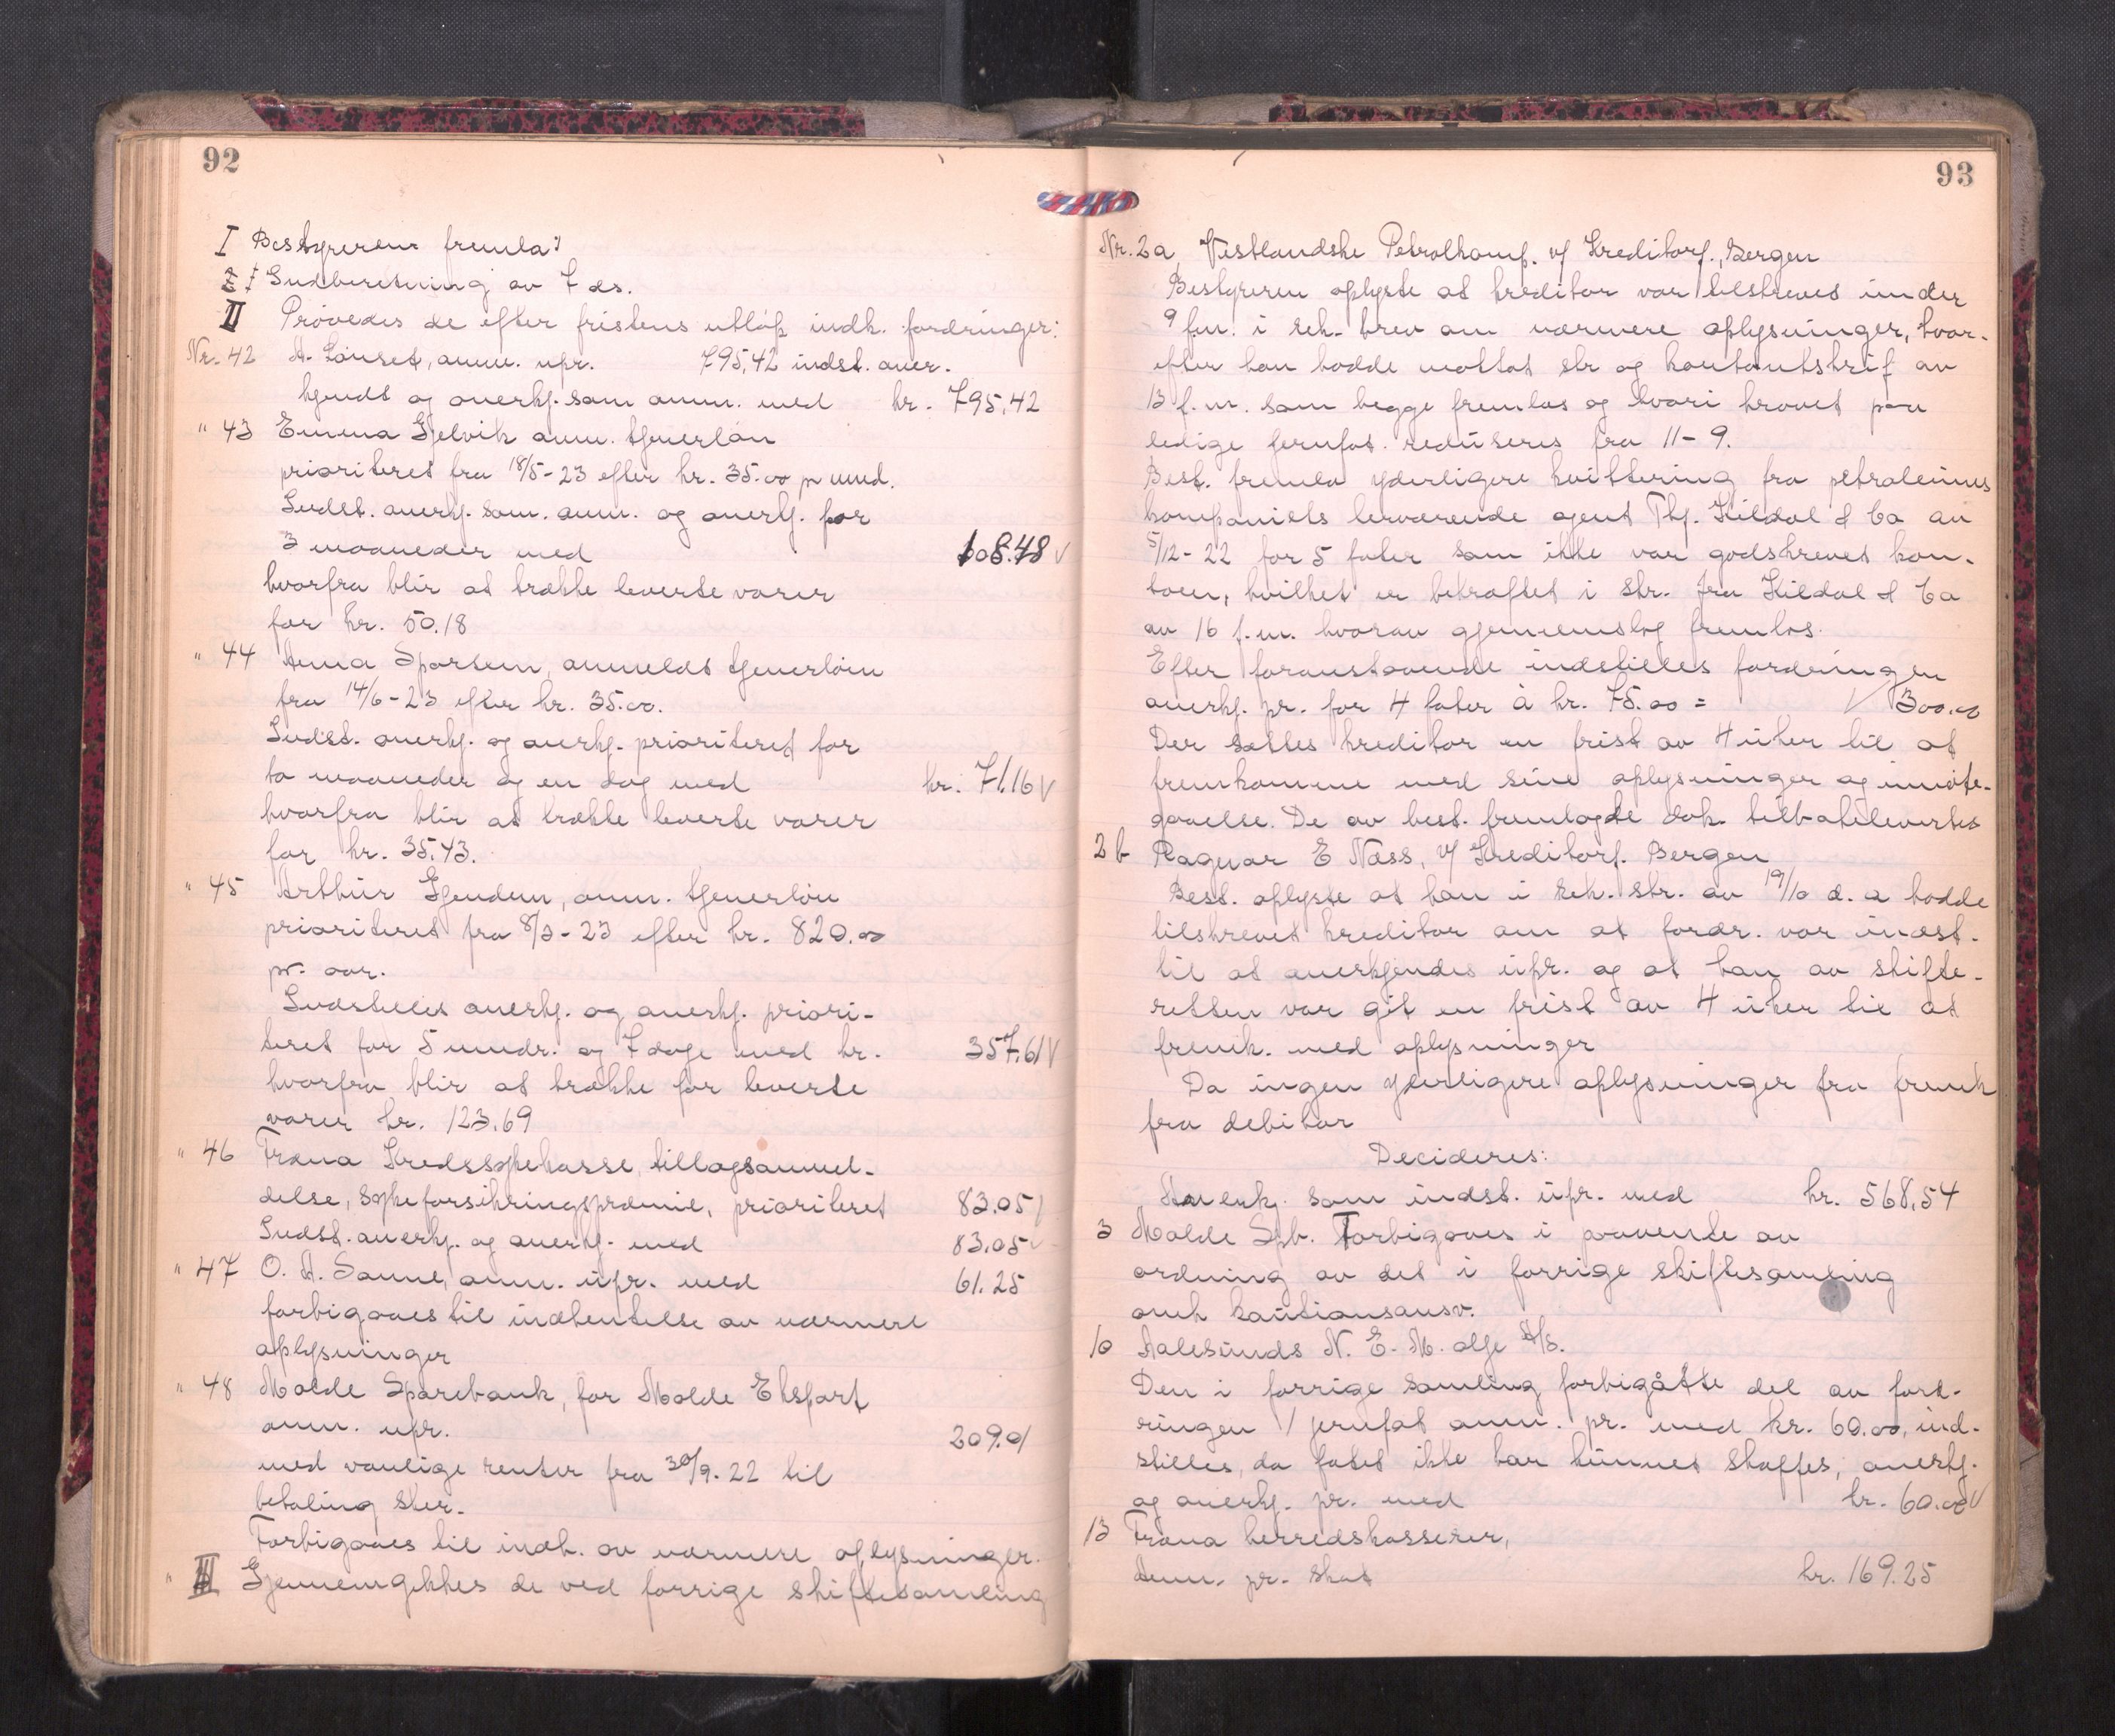 92
I Bestyreren fremla:
Indberetning av 7 ds.
II Prövedes de efter fristens utlöp indk. fordringer:
Nr. 42 A. Lönset, anm. upr. 795,42 indst. aner-
kjendt og anerkj. som anm. med kr. 795,42
" 43 Emma Gjelvik anm. tjenerlön
prioriteret fra 18/5-23 efter kr. 35.00 pr mnd.
Indst. anerkj. som. anm. og anerkj. for
3 maaneder med 108.48
hvorfra blir at trække leverte varer
for kr. 50.18
" 44 Anna Sporsem, anmeldt tjenerlön
fra 14/6-23 efter kr. 35.00.
Indst. anerkj. og anerkj. prioriteret for
to maaneder og en dag med kr. 71.16
hvorfra blir at trække leverte varer
for kr. 35.43.
" 45 Arthur Gjendem, anm. tjenerlön
prioriteret fra 8/3-23 efter kr. 820.00
pr. aar.
Indstilles anerkj. og anerkj. priori-
teret for 5 mndr. og 7 dage med kr. 357.61
hvorfra blir at trække for leverte
varer kr. 123.69
" 46 Fræna Kredssykekasse, tillægsanmel-
delse, sykeforsikringspræmie, prioriteret 83.05
Indst. anerkj. og anerkj. med 83.05
" 47 O. A. anm. upr. med 61.25
forbigaaes til indhentelse av nærmere
oplysninger
" 48 Molde Sparebank, for Molde Eksport
anm. upr. 209.01
med vanlige renter fra 30/9-22 til
betaling sker.
Forbigaaes til indh. av nærmere oplysninger.
" III Gjennemgikkes de ved forrige skiftesamling
93
Nr. 2a, Vestlandske Petrolkomp. v/ Kreditorf., Bergen
Bestyreren oplyste at kreditor var tilskrevet under
9 f.m. i rek. brev om nærmere oplysninger, hvor-
efter han hadde mottat skr og kontoutskrif av
13 f.m. som begge fremlas og hvori kravet paa
ledige jernfat. reduseres fra 11-9.
Best. fremla yderligere kvittering fra petroleums
kompaniets herværende agent Thj. Kildal & Co av
5/12-22 for 5 fater som ikke var godskrevet kon-
toen, hvilket er bekræftet i skr. fra Kildal & Co
av 16 f.m. hvorav gjennemslag fremlas.
Efter foranstaaende indstilles fordringen
anerkj. pr. for 4 fater à kr. 75.00 = 300.00
Der sættes kreditor en frist av 4 uker til at
fremkomme med sine oplysninger og imöte-
gaaelse. De av best. fremlagde dok. tilbakelevertes
2 b Ragnar E Næss, v/ Kreditorf. Bergen
Best. oplyste at han i rek. skr. av 19/10 d. a hadde
tilskrevet kreditor om at fordr. var indst.
til at anerkjendes upr. og at han av skifte-
retten var git en frist av 4 uker til at
fremk. med oplysninger
Da ingen yderligere oplysninger fra fremk
fra debitor
Decideres:
Anerkj. som indst. upr. med kr. 568,54
3 Molde Spb. Forbigaaes i paavente av
ordning av det i forrige skiftesamling
omh kautionsansv.
10 Aalesunds N. E. M. olje A/S.
Den i forrige samling forbigåtte del av ford-
ringen 1 jernfat anm. pr. med kr. 60.00, ind-
stilles, da fatet ikke har kunnet skaffes, anerkj.
og anerkj. pr. med kr. 60.00
13 Fræna herredskasserer,
Anm. pr. skat kr. 169.25